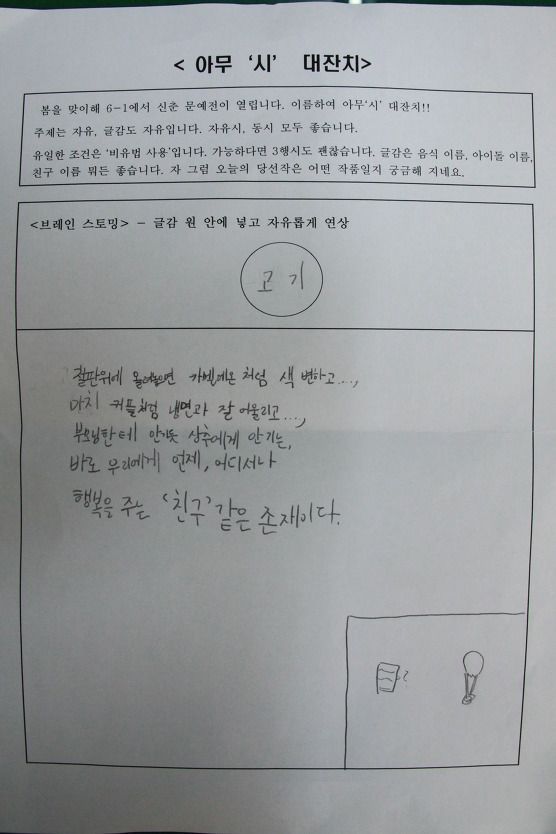 < 아무 '시' 대잔치>
봄을 맞이해 6-1에서 신춘 문예전이 열립니다. 이름하여 아무'시' 대잔치!!
주제는 자유, 글감도 자유입니다. 자유시, 동시 모두 좋습니다.
유일한 조건은 '비유법 사용'입니다. 가능하다면 3행시도 괜찮습니다. 글감은 음식 이름, 아이돌 이름,
친구 이름 뭐든 좋습니다. 자 그럼 오늘의 당선작은 어떤 작품일지 궁금해 지네요.
<브레인 스토밍> - 글감 원 안에 넣고 자유롭게 연상
고기
철판위에 올려놓으면 카멜레온 처럼 색 변하고...,
마치 커플처럼 냉면과 잘 어울리고...,
부모님한테 안기듯 상추에게 안기는,
바로 우리에게 언제, 어디서나
행복을 주는 '친구' 같은 존재이다.